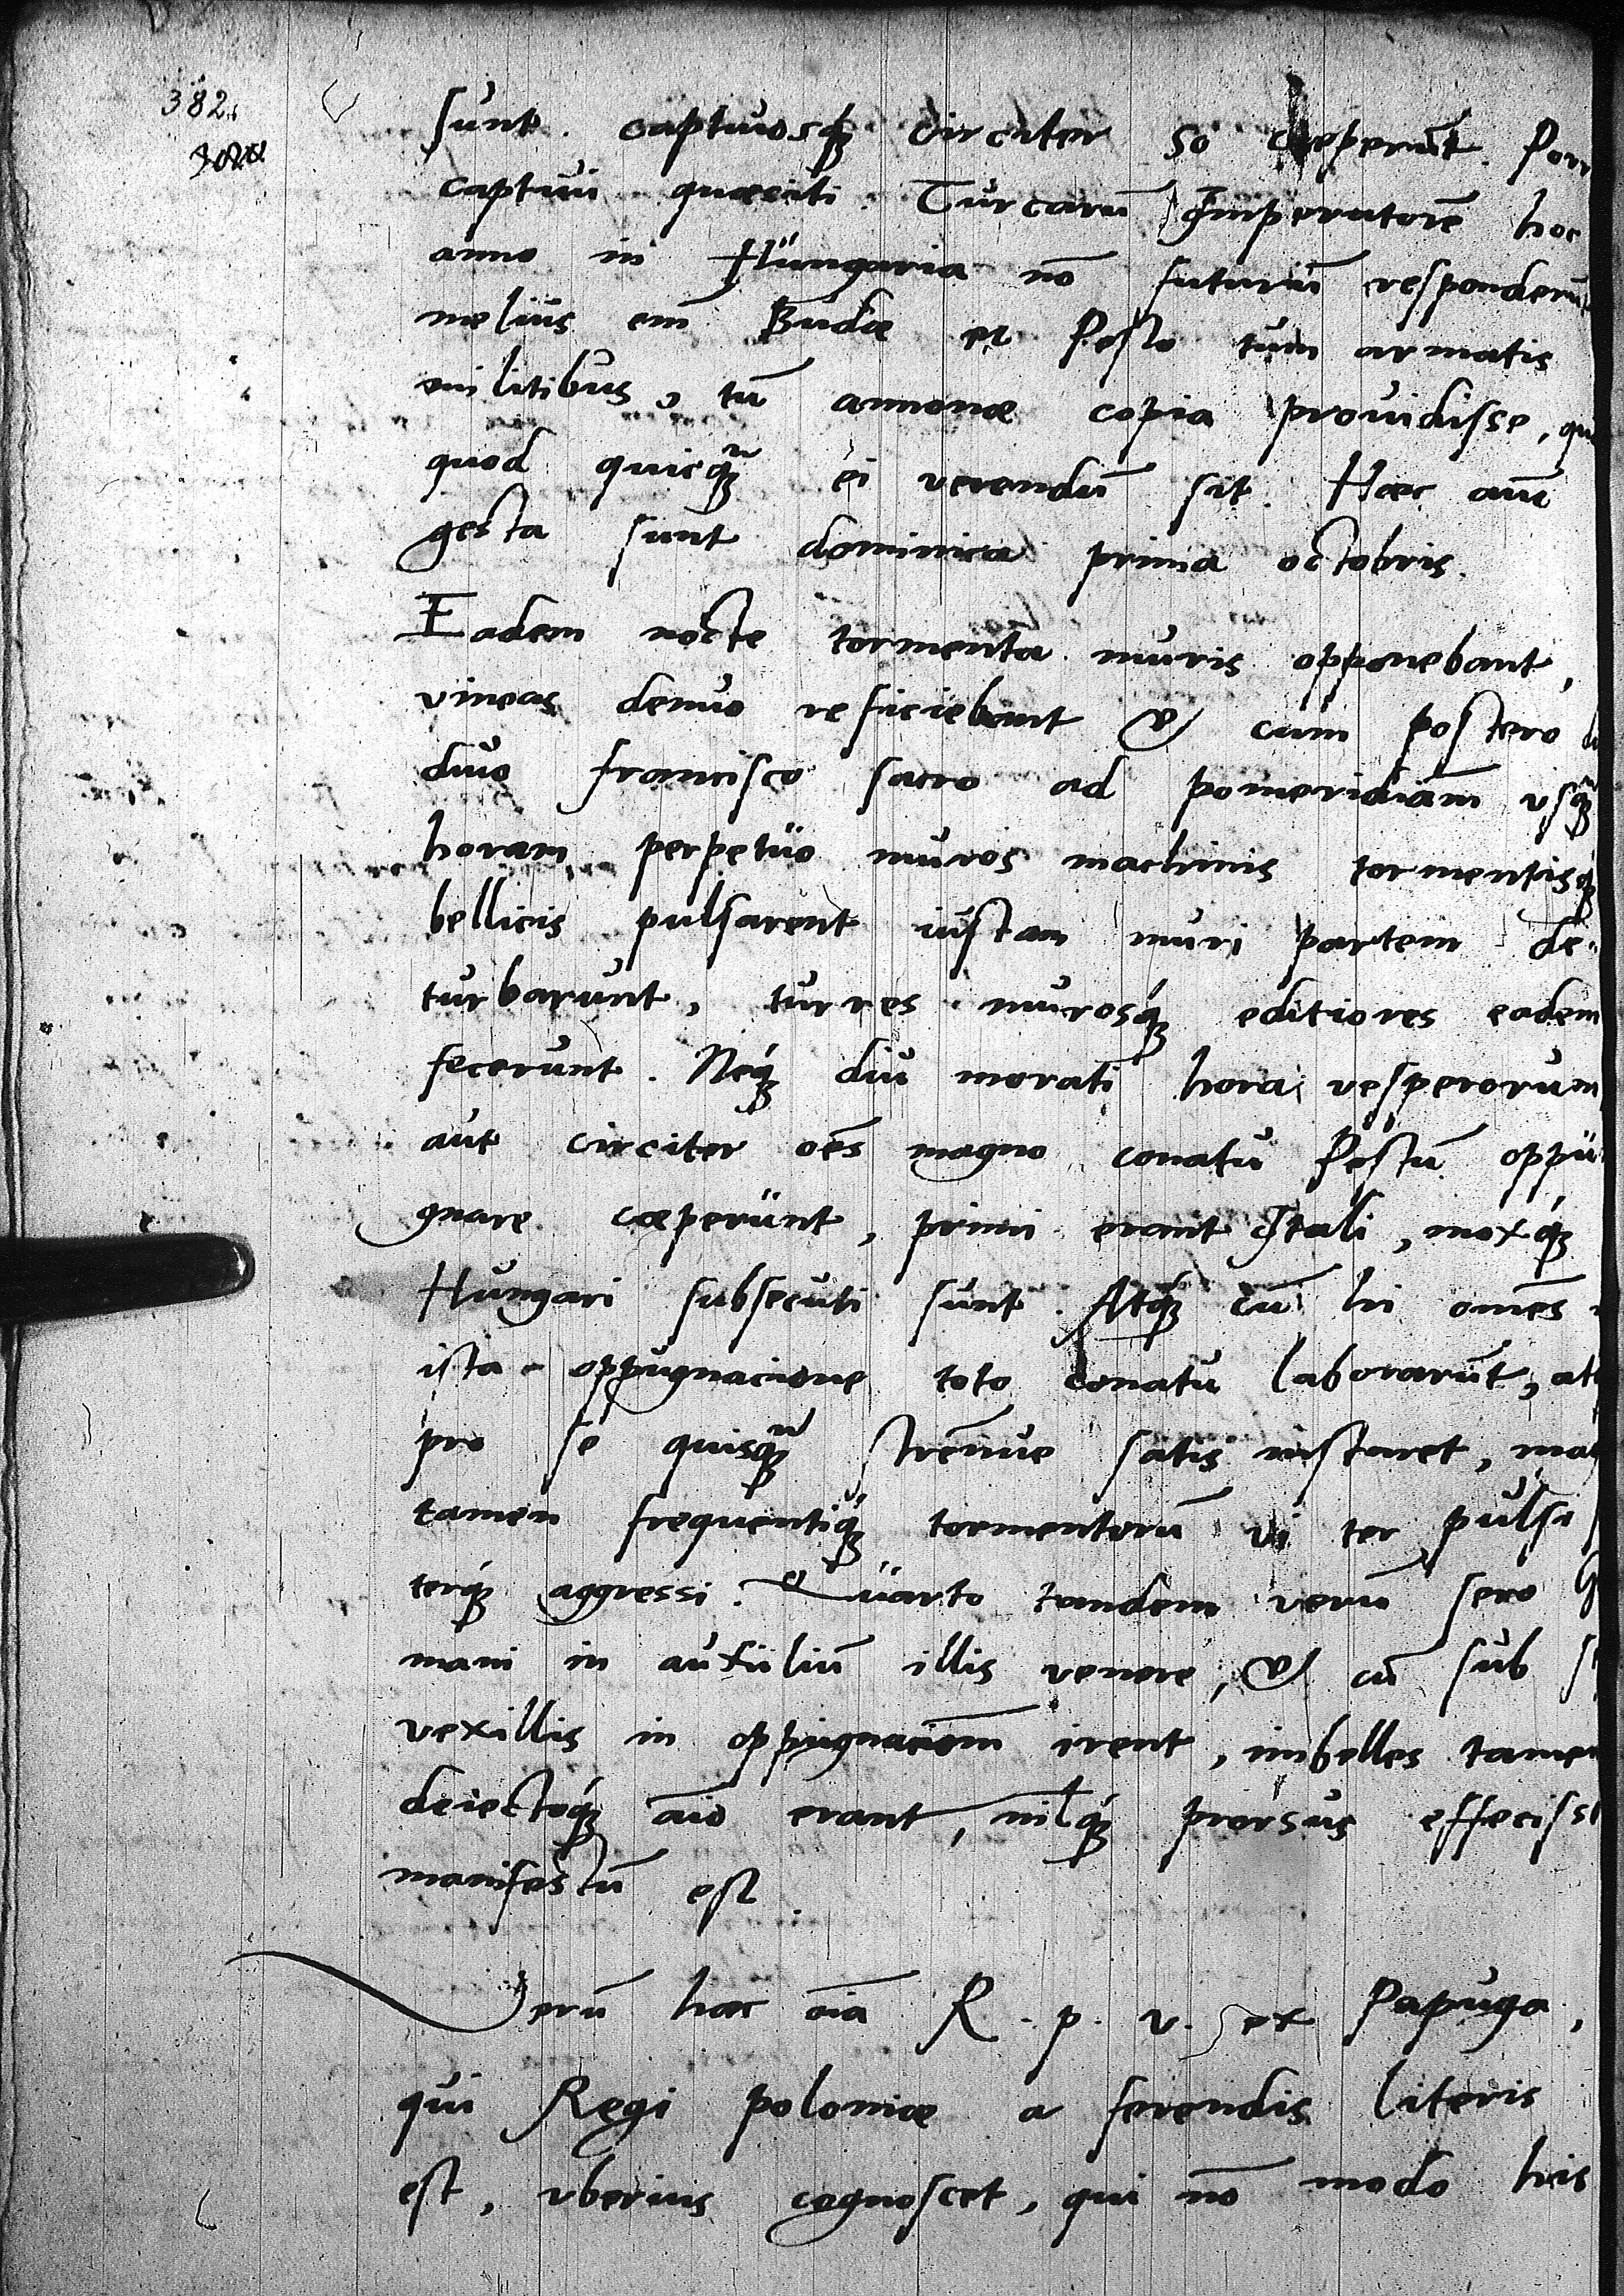 382.
sunt. captivosq́ꝫ circiter 50 ceperūt. Porr
captivi quaesiti. Turcarū Imperatorē hoc
anno in Hungaria nō futurū responderūt
melius em̄ Budae et Pesto tum armatis
militibus, tū annonae copia providisse, qū
quod quicqꝫ ei verendū sit. Haec aūt
gesta sunt dominica prima octobris.
Eadem nocte tormenta muris opponebant,
vineas denuo reficiebant & cum postero
divo francisco sacro ad pomeridianam vsqꝫ
horam perpetuo muros machinis tormentisqꝫ
bellicis pulsarent iustam muri partem de-
turbarunt, turres murosq́ꝫ editiores eadem
fecerunt. Neq́ꝫ diu morati hora vesperorum
aut circiter oēs magno conatu Pestū oppu
gnare coeperunt, primi erant Itali, moxq́ꝫ
Hungari subsecuti sunt. Atqꝫ cū hi omēs
ista oppugnacione toto conatu laborarūt, atq
pro se quisqꝫ strēnue satis instaret, mag
tamen frequentiq́ꝫ tormentorū vi ter pulsi
terq́ꝫ aggressi. Quarto tandem verū sero G
mani in auxiliū illis venere, & cū sub
vexillis in oppugnaciōm irent, imbelles tamen
deiectoq́ꝫ aīo erant, nilq́ꝫ prorsus effecisse
manifestū est.
Verū haec oīa R. p. v. ex Papuga,
qui Regi poloniae a ferendis literis
est, vberius cognoscet, qui nō modo his